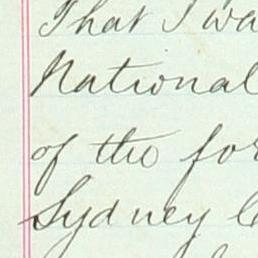 That I wa
National
of the for
Sydney C